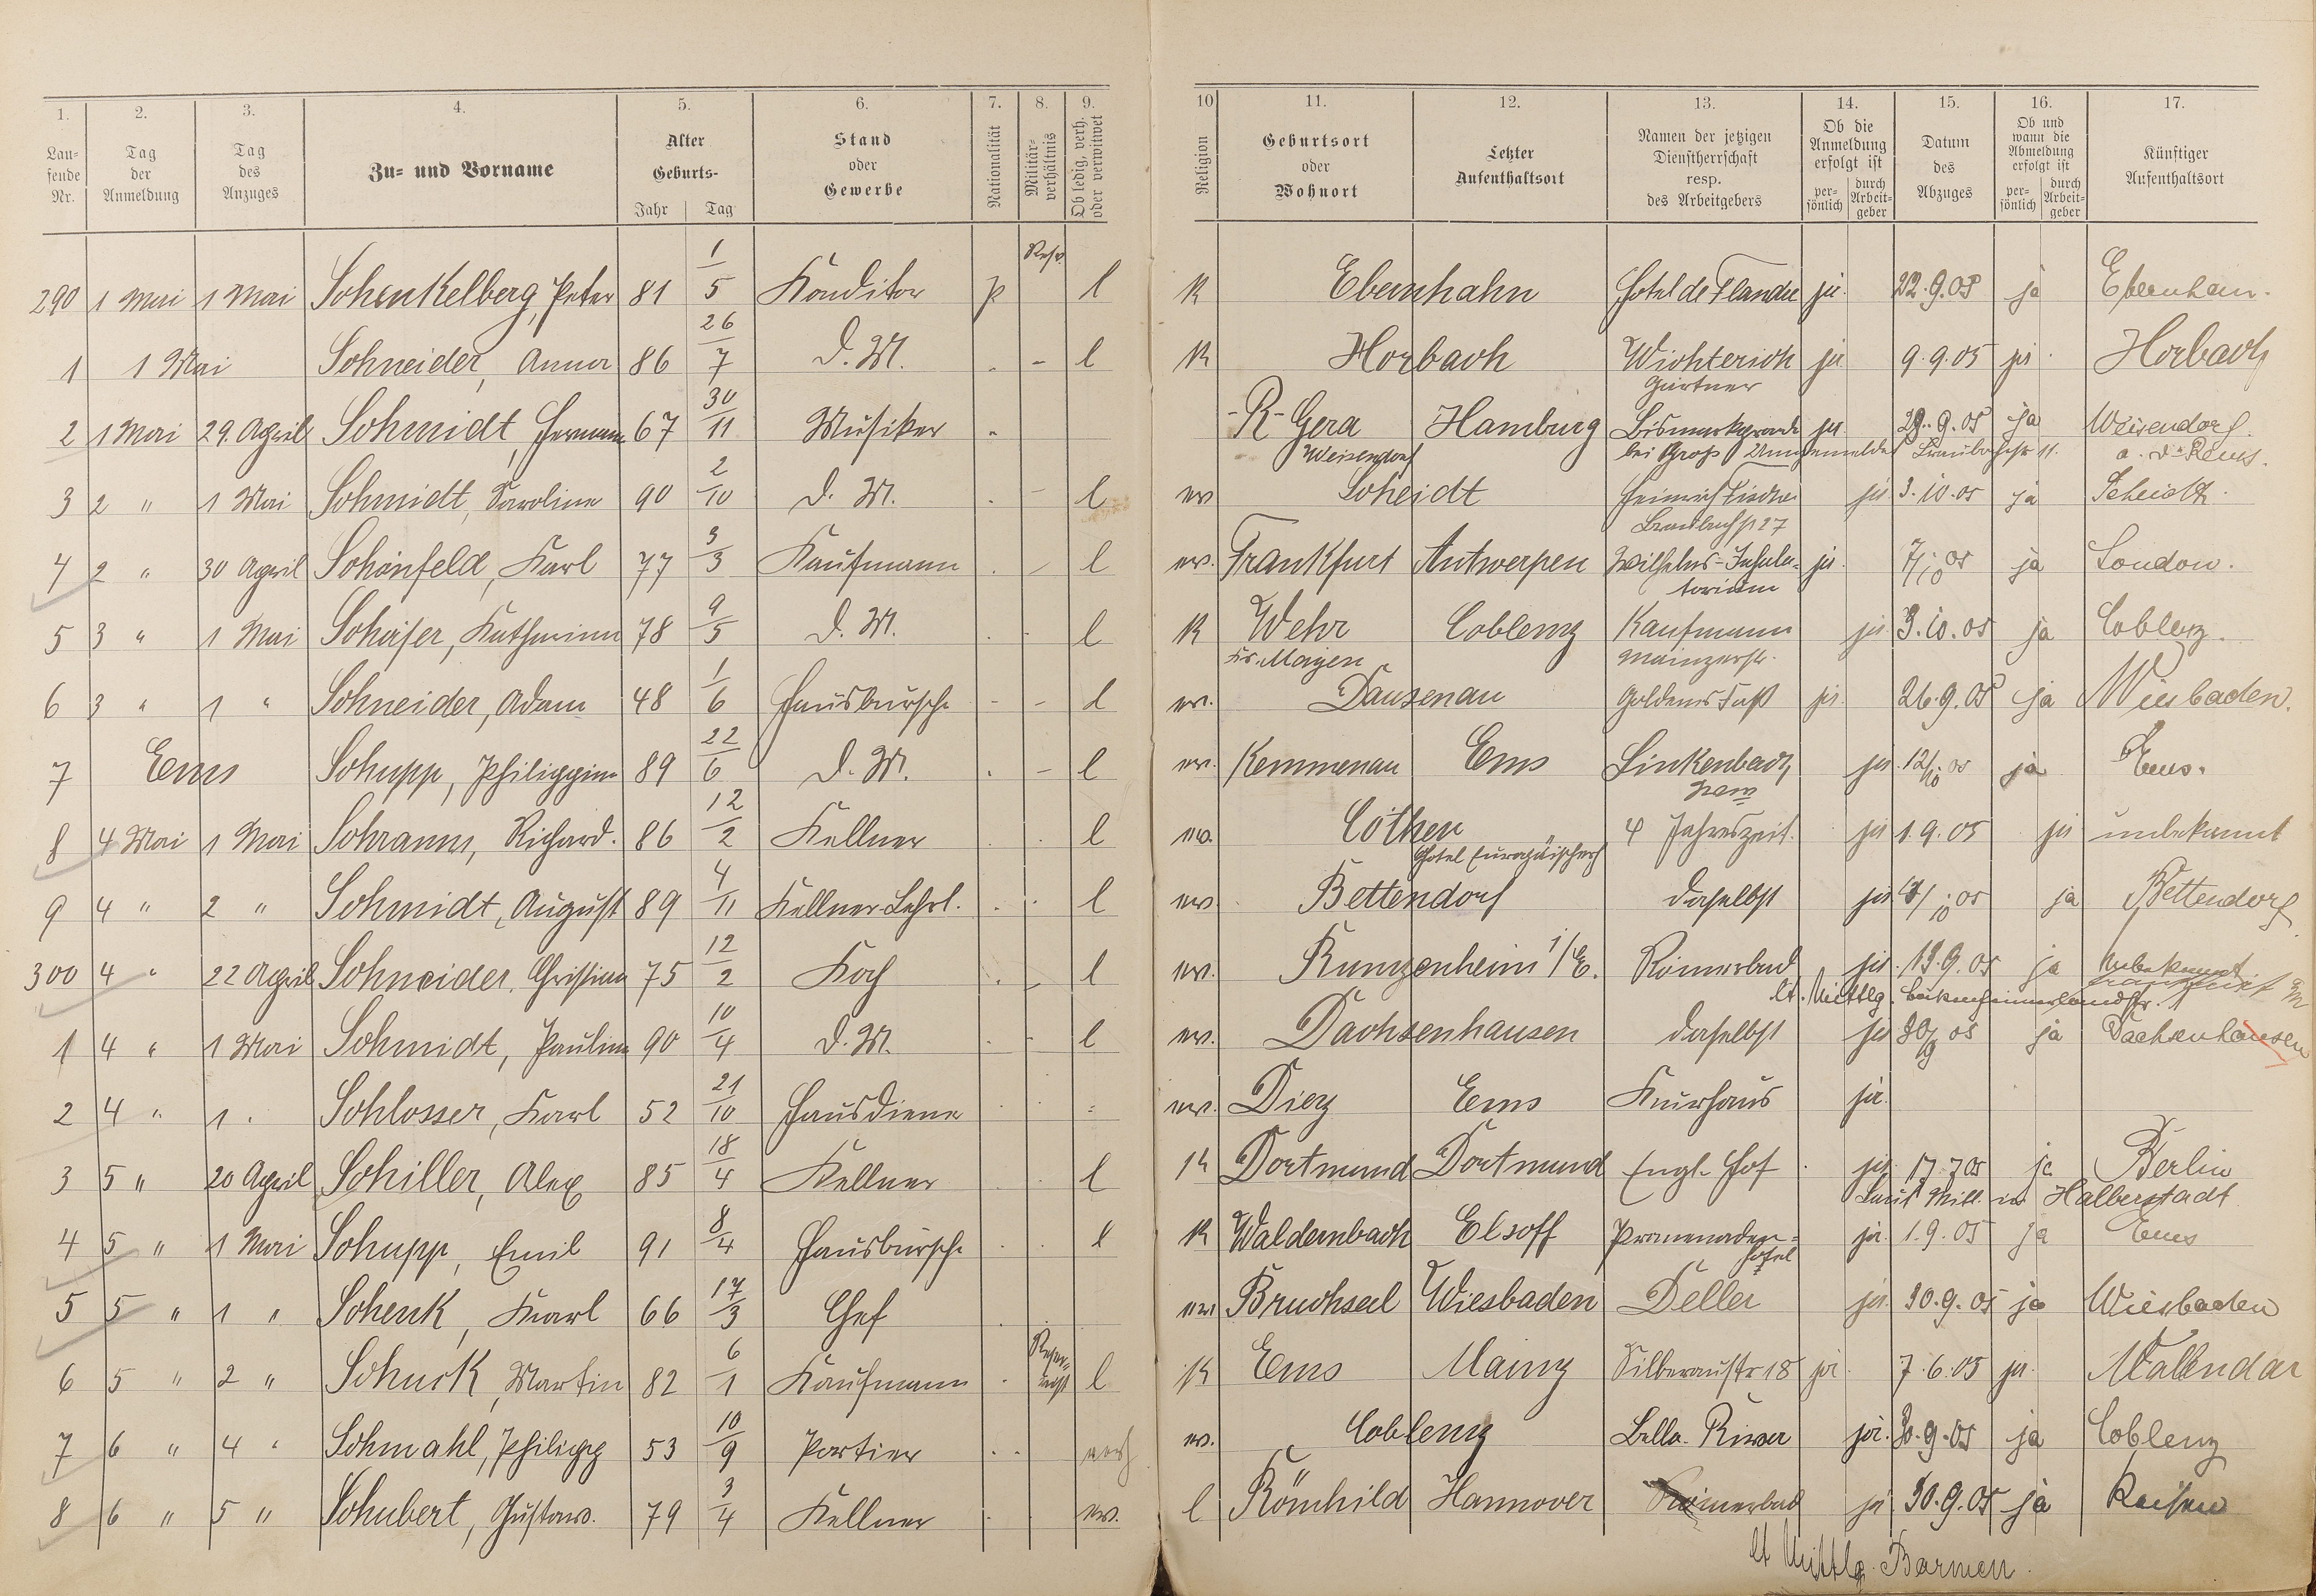 1. 2. 3. 4. 5. 6. 7. 8. 9. 10 11. 12. 13. 14. 15. 16. 17.
Lau-
fende
Nr.
Tag
der
Anmeldung
Tag
des
Anzuges
Zu- und Vorname
Alter
Geburts-
Jahr Tag
Stand
oder
Gewerbe
Nationalität
Militär-
verhältnis
Ob ledig, verh.
oder verwitwet
Religion
Geburtsort
oder
Wohnort
Letzter
Aufenthaltsort
Namen der jetzigen
Dienstherrschaft
resp.
des Arbeitgebers
Ob die
Anmeldung
erfolgt ist
per-
sönlich
durch
Arbeit-
geber
Datum
des
Abzuges
Ob und
wann die
Abmeldung
erfolgt ist
per-
sönlich
durch
Arbeit-
geber
Künftiger
Aufenthaltsort
290 1 Mai 1 Mai Schenkelberg, Peter 81 1/5 Konditor p Res. l K Ebernhahn Hotel de Flandre ja 22.9.05 ja
1 1 Mai Schneider, Anna 86 26/7 D. M. - l K Horbach Wichterich ja 9.9.05 ja Horbach
Gärtner
2 1 Mai 29. April Schmidt, Hermann 67 30/11 Musiker R-Gera Hamburg ja 29.9.05 ja Weisendorf
Weisendorf bei Groß
3 2 " 1 Mai Schmidt, Karoline 90 2/10 D. M. - l ev Scheidt Heinrich ja 3.10.05 ja Scheidt.
4 2 " 30 April Schönfeld, Karl 77 3/3 Kaufmann - l ev. Frankfurt Antwerpen Wilhelms-Inhala- ja 7/10 05 ja London.
torium
5 3 " 1 Mai Schäfer, Katharina 78 9/5 D. M. l K Wehr Coblenz Kaufmann ja 3.10.05 ja Coblenz.
Kr. Mayen Mainzerstr.
6 3 " 1 " Schneider, Adam 48 1/6 Hausbursche - - l ev. Dausenau Goldenes Faß ja 26.9.05 ja Wiesbaden.
7 Ems Schupp, Philippine 89 22/6 D. M. - l ev. Kemmenau Ems Linkenbach ja 12/10 05 ja Ems.
8 4 Mai 1 Mai Schramm, Richard. 86 12/2 Kellner l ev. Cöthen 4 Jahreszeit. ja 1.9.05 ja unbekannt
Hotel Europäischerh
9 4 " 2 " Schmidt, August 89 4/11 Kellner-Lehrl. l ev Bettendorf daselbst ja ja Bettendorf
300 4 " 22 April Schneider, Christian 75 12/2 Koch - l ev. Kunzenheim i/E. Römerbad ja ja unbekannt
lt. Mittlg.
1 4 " 1 Mai Schmidt, Pauline 90 10/4 D. M. l ev. Dachsenhausen daselbst ja 30/9 05 ja Dachsenhausen
2 4 " 1 " Schlosser, Karl 52 21/10 Hausdiener ev. Diez Ems Kurhaus ja.
3 5 " 20 April Schiller, Alex 85 18/4 Kellner l K Dortmund Dortmund Engl. Hof ja 17.7.05 ja Berlin
Laut Mitt. in Halberstadt
4 5 " 1 Mai Schupp, Emil 91 8/4 Hausbursche l K Waldernbach Elsoff Promenaden- ja. 1.9.05 ja Ems
hotel
5 5 " 1 " Schenk, Karl 66 17/3 Chef ev Bruchsal Wiesbaden Deller ja. 30.9.05 ja Wiesbaden
6 5 " 2 " Schuck, Martin 82 6/1 Kaufmann l K Ems Mainz Silberaustr 18 ja 7.6.05 ja. Vallendar
7 6 " 4 " Schmahl, Philipp 53 10/9 Portier verh ev. Coblenz Bella-Riva ja. 30.9.05 ja Coblenz
8 6 " 5 " Schubert, Gustav. 79 3/4 Kellner ev. l Römhild Hannover Römerbad ja 30.9.05 ja Reisen
lt Mittlg. Barmen.